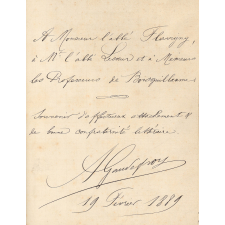 A Monsieur l'abbé Flavigny,
à Mr l'abbé Lesueur et à Messieurs
les Professeurs de Bourguillemin
Souvenir d'affectueux attachement &
de bonne confraternité
A Gaudefroy
19 Février 1889